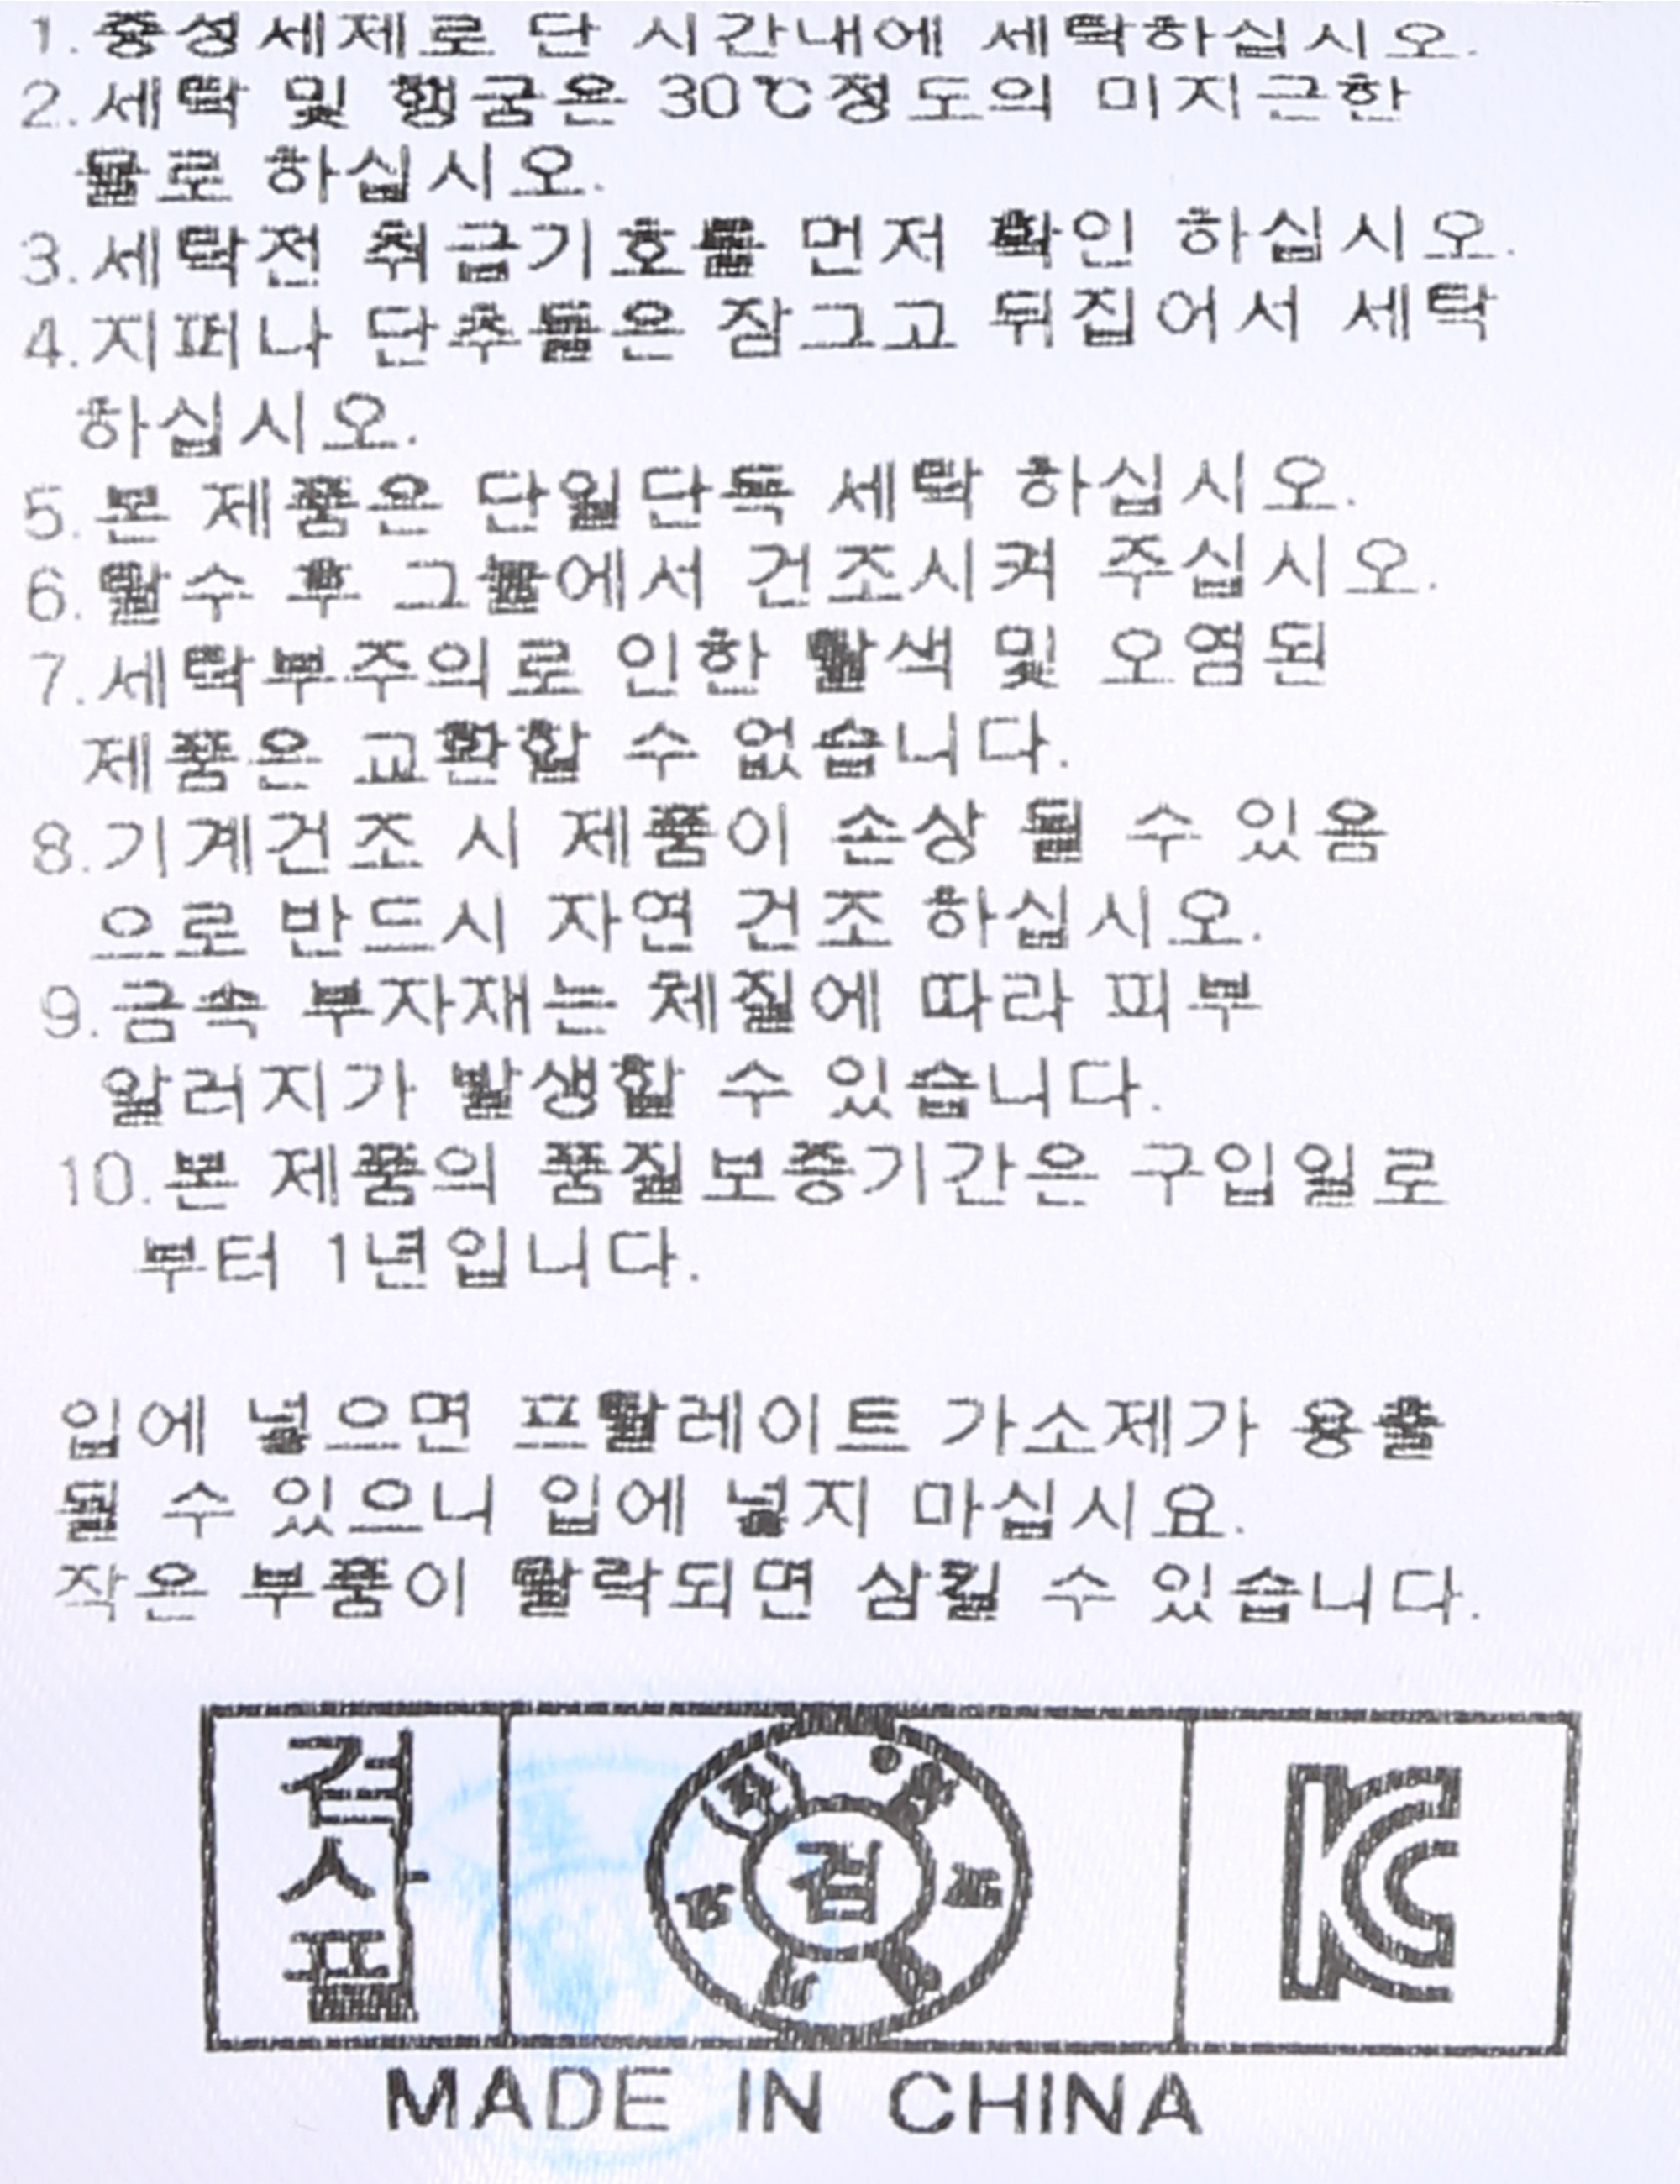 1.중성세제로 단 시간내에 세탁하십시오.
2.세탁 및 행굼은 30℃정도의 미지근한
물로 하십시오.
3.세탁전 취급기호를 먼저 확인 하십시오.
4.지퍼나 단추들은 잠그고 뒤집어서 세탁
하십시오.
5.본 제품은 단일단독 세탁 하십시오.
6.탈수 후 그늘에서 건조시켜 주십시오.
7.세탁부주의로 인한 탈색 및 오염된
제품은 교환할 수 없습니다.
8.기계건조 시 제품이 손상 될 수 있음
으로 반드시 자연 건조 하십시오.
9.금속 부자재는 체질에 따라 피부
알러지가 발생할 수 있습니다.
10.본 제품의 품질보증기간은 구입일로
부터 1년입니다.
입에 넣으면 프탈레이트 가소제가 용출
될 수 있으니 입에 넣지 마십시요.
작은 부품이 탈락되면 삼킬 수 있습니다.
검사필
검
KC
MADE IN CHINA